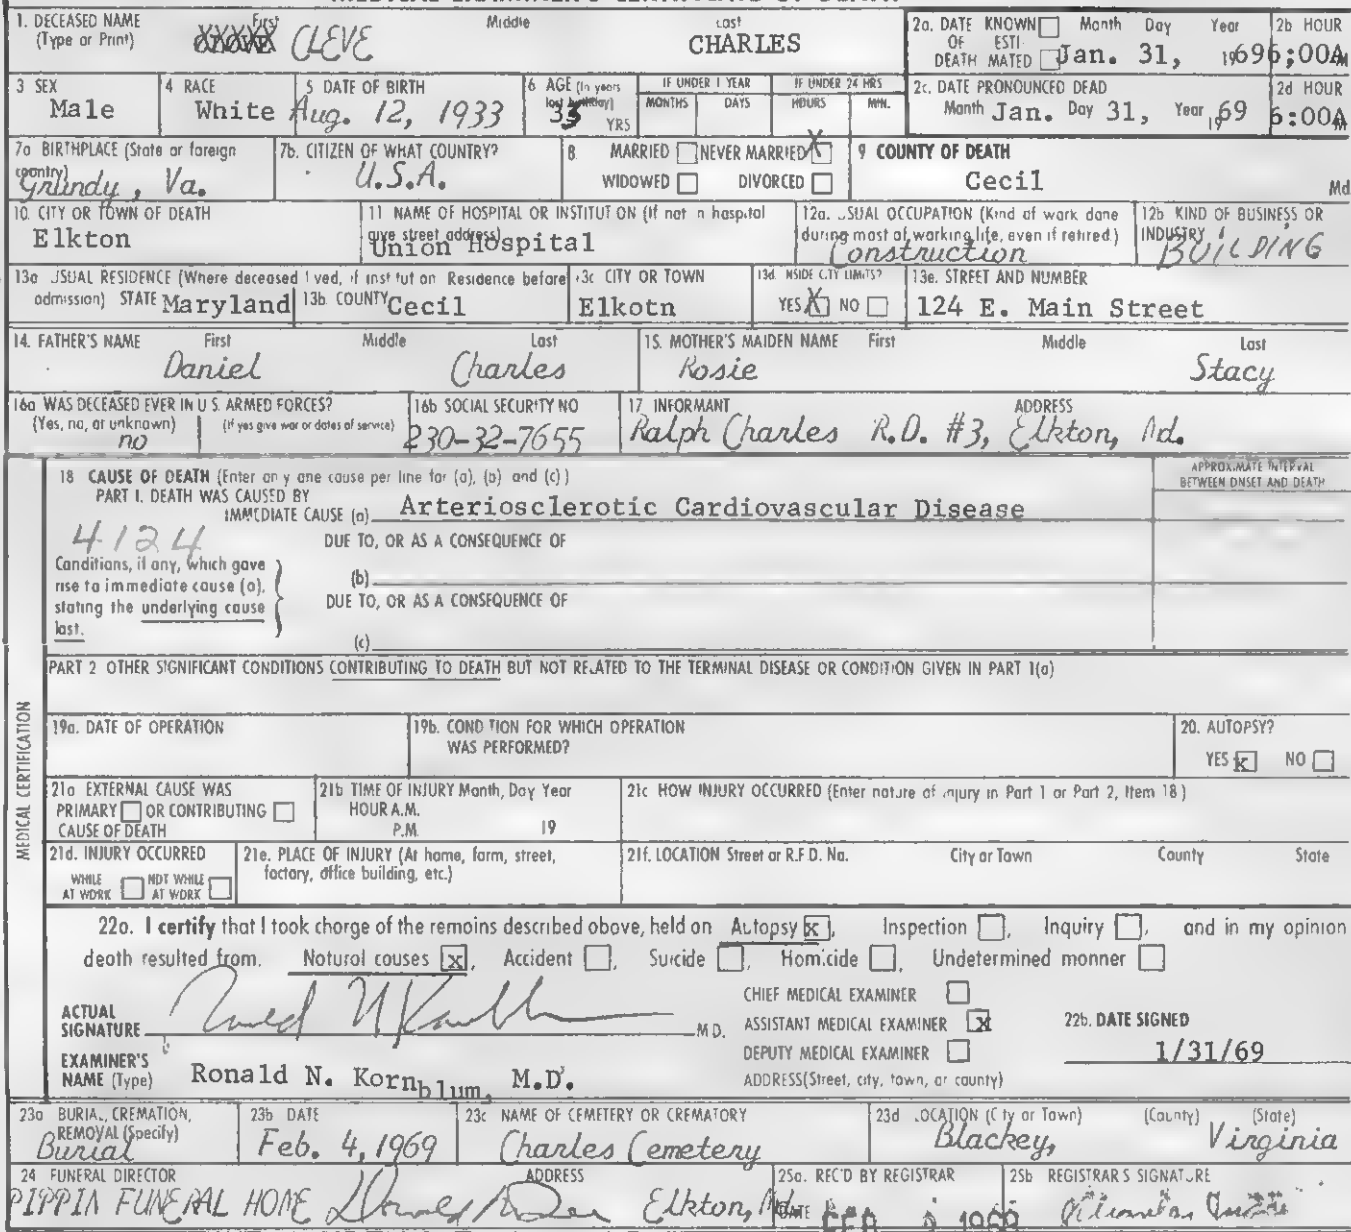 1. DECEASED NAME (Type or Print) First Middle Last
CLEVE CHARLES
2a. DATE KNOWN ☐ OF ESTI- DEATH MATED ☐ Month Day Year
Jan. 31, 1969
2b HOUR
6;00A M
3 SEX
Male
4 RACE
White
5 DATE OF BIRTH
Aug. 12, 1933
6 AGE (In years last birthday) YRS
35
IF UNDER 1 YEAR MONTHS DAYS
IF UNDER 24 HRS HOURS MIN.
2c. DATE PRONOUNCED DEAD
Month Jan. Day 31, Year 1969
2d HOUR
6:00A M
7a BIRTHPLACE (State or foreign country)
Grundy, Va.
7b. CITIZEN OF WHAT COUNTRY?
U.S.A.
8. MARRIED ☐ NEVER MARRIED X
WIDOWED ☐ DIVORCED ☐
9 COUNTY OF DEATH
Cecil Md
10. CITY OR TOWN OF DEATH
Elkton
11 NAME OF HOSPITAL OR INSTITUTION (If not in hospital give street address)
Union Hospital
12a. USUAL OCCUPATION (Kind of work done during most of working life, even if retired.)
Construction
12b KIND OF BUSINESS OR INDUSTRY
BUILDING
13a USUAL RESIDENCE (Where deceased lived, if institution Residence before admission) STATE Maryland
13b. COUNTY Cecil
13c CITY OR TOWN
Elkotn
13d. INSIDE CITY LIMITS?
YES X NO ☐
13e. STREET AND NUMBER
124 E. Main Street
14. FATHER'S NAME First Middle Last
Daniel Charles
15. MOTHER'S MAIDEN NAME First Middle Last
Rosie Stacy
16a WAS DECEASED EVER IN U S. ARMED FORCES?
(Yes, no, or unknown) (If yes give war or dates of service)
no
16b SOCIAL SECURITY NO
230-32-7655
17 INFORMANT ADDRESS
Ralph Charles R.D. #3, Elkton, Md.
18 CAUSE OF DEATH (Enter only one cause per line for (a), (b) and (c))
APPROXIMATE INTERVAL BETWEEN ONSET AND DEATH
PART I. DEATH WAS CAUSED BY
IMMEDIATE CAUSE (a) Arteriosclerotic Cardiovascular Disease
4124
DUE TO, OR AS A CONSEQUENCE OF
Conditions, if any, which gave rise to immediate cause (a), stating the underlying cause last.
(b)
DUE TO, OR AS A CONSEQUENCE OF
(c)
PART 2 OTHER SIGNIFICANT CONDITIONS CONTRIBUTING TO DEATH BUT NOT RELATED TO THE TERMINAL DISEASE OR CONDITION GIVEN IN PART 1(a)
MEDICAL CERTIFICATION
19a. DATE OF OPERATION
19b. CONDITION FOR WHICH OPERATION WAS PERFORMED?
20. AUTOPSY?
YES x NO ☐
21a EXTERNAL CAUSE WAS
PRIMARY ☐ OR CONTRIBUTING ☐
CAUSE OF DEATH
21b TIME OF INJURY Month, Day Year
HOUR A.M.
P.M. 19
21c HOW INJURY OCCURRED (Enter nature of injury in Part 1 or Part 2, Item 18)
21d. INJURY OCCURRED
WHILE AT WORK ☐ NOT WHILE AT WORK ☐
21e. PLACE OF INJURY (At home, farm, street, factory, office building, etc.)
21f. LOCATION Street or R.F D. No. City or Town County State
22a. I certify that I took charge of the remains described above, held on Autopsy x, Inspection ☐, Inquiry ☐, and in my opinion
death resulted from. Natural causes x, Accident ☐, Suicide ☐, Homicide ☐, Undetermined manner ☐
ACTUAL SIGNATURE M D.
CHIEF MEDICAL EXAMINER ☐
ASSISTANT MEDICAL EXAMINER x
DEPUTY MEDICAL EXAMINER ☐
ADDRESS(Street, city, town, or county)
22b. DATE SIGNED
1/31/69
EXAMINER'S NAME (Type) Ronald N. Kornblum, M.D.
23a BURIAL, CREMATION, REMOVAL (Specify)
Burial
23b DATE
Feb. 4, 1969
23c NAME OF CEMETERY OR CREMATORY
Charles Cemetery
23d LOCATION (City or Town) (County) (State)
Blackey, Virginia
24 FUNERAL DIRECTOR ADDRESS
PIPPIN FUNERAL HOME Elkton, Md.
25a. REC'D BY REGISTRAR
DATE FEB 1969
25b REGISTRAR'S SIGNATURE